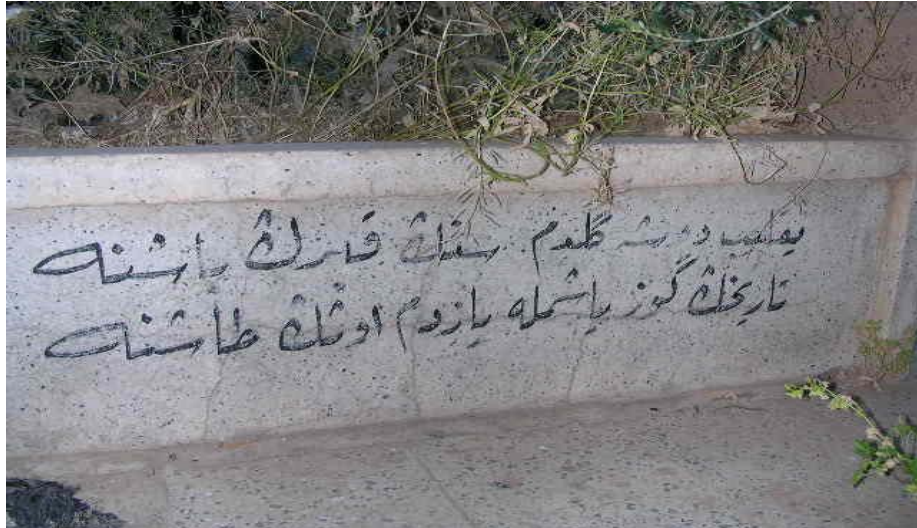 يقلیب دوشه گلدم سنڭ قبرڭ باشنه
تاریخڭ گوز یاشمله یازدم اونڭ طاشنه